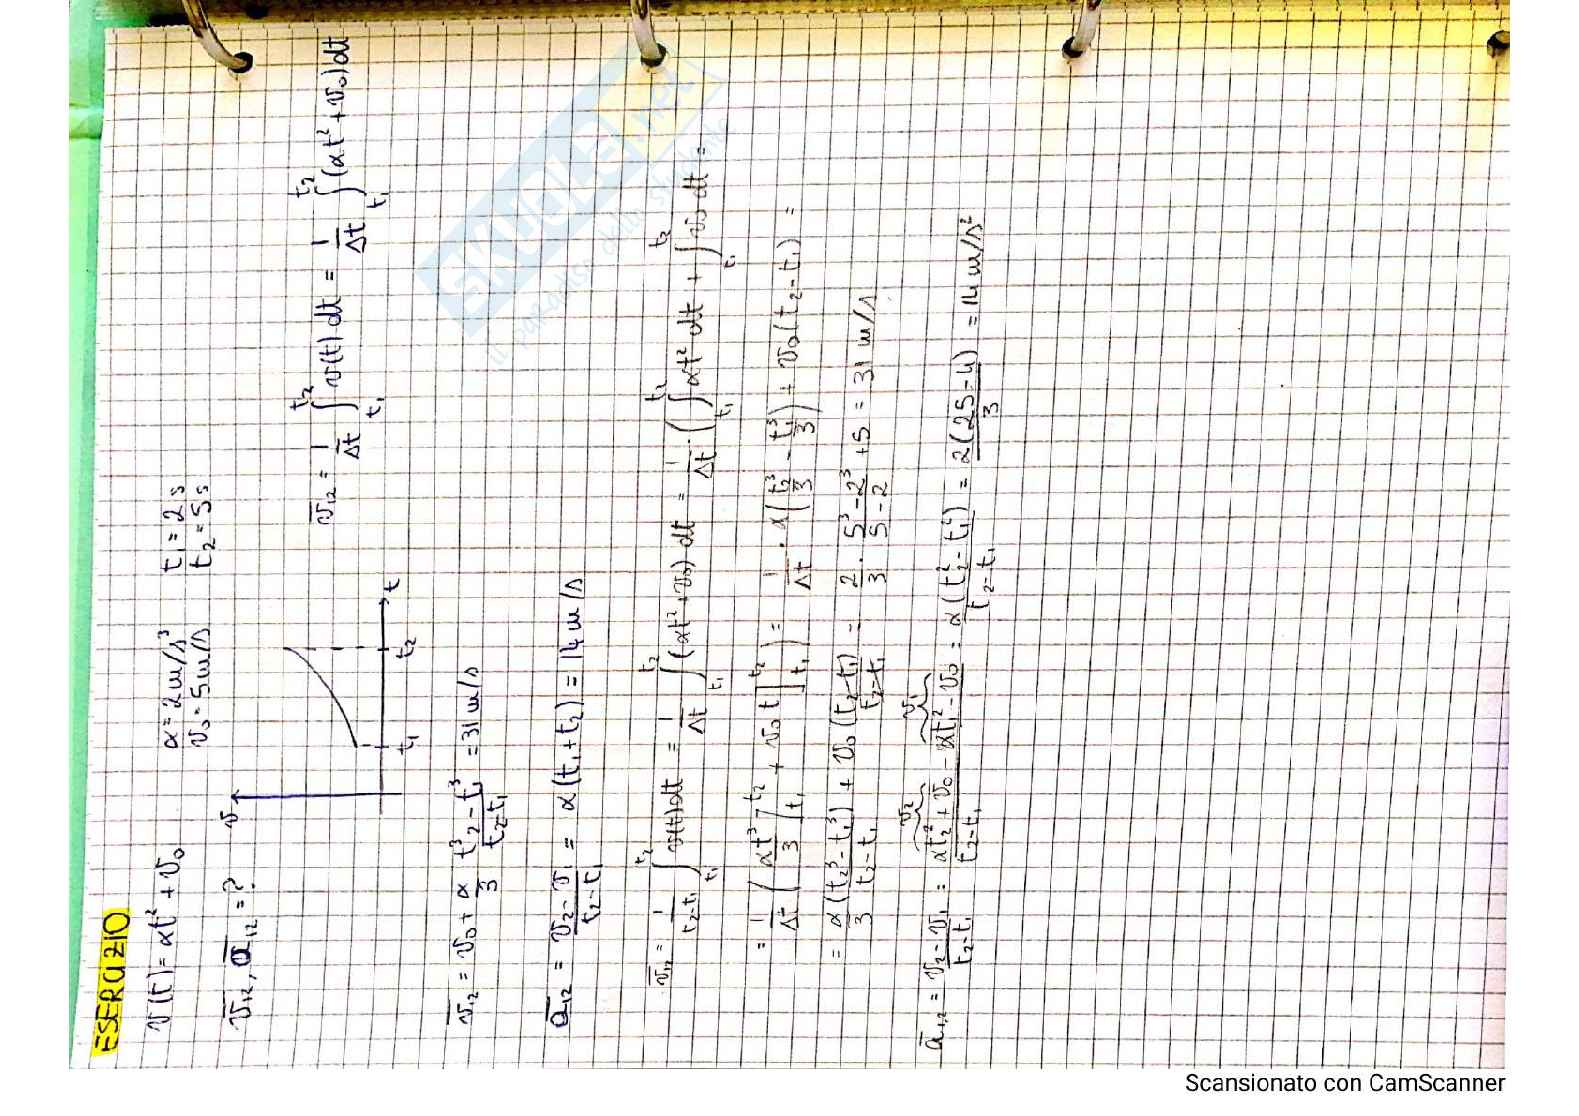 ESERCIZIO
v(t) = αt² + v₀
α = 2 m/s³
t₁ = 2s
v₀ = 5 m/s
t₂ = 5s
v̄₁₂, ā₁₂ = ?
v
t₁
t₂
t
v̄₁₂ = 1/Δt ∫_{t₁}^{t₂} v(t) dt = 1/Δt ∫_{t₁}^{t₂} (αt² + v₀) dt
v̄₁₂ = v₀ + α/3 (t₂³ - t₁³)/(t₂ - t₁) = 31 m/s
ā₁₂ = (v₂ - v₁)/(t₂ - t₁) = α(t₁ + t₂) = 14 m/s
v̄₁₂ = 1/(t₂ - t₁) ∫_{t₁}^{t₂} v(t) dt = 1/Δt ∫_{t₁}^{t₂} (αt² + v₀) dt = 1/Δt · (∫_{t₁}^{t₂} αt² dt + ∫_{t₁}^{t₂} v₀ dt =
= 1/Δt (αt³/3 ]_{t₁}^{t₂} + v₀ t ]_{t₁}^{t₂}) = 1/Δt · α(t₂³/3 - t₁³/3) + v₀(t₂ - t₁) =
= α/3 (t₂³ - t₁³)/(t₂ - t₁) + v₀ (t₂ - t₁)/(t₂ - t₁) = 2/3 · (5³ - 2³)/(5 - 2) + 5 = 31 m/s
v₂
v₁
ā₁₂ = (v₂ - v₁)/(t₂ - t₁) = (αt₂² + v₀ - αt₁² - v₀)/(t₂ - t₁) = α(t₂² - t₁²)/(t₂ - t₁) = 2(25 - 4)/3 = 14 m/s²
SKUOLA.net
il paradiso dello studente
Scansionato con CamScanner